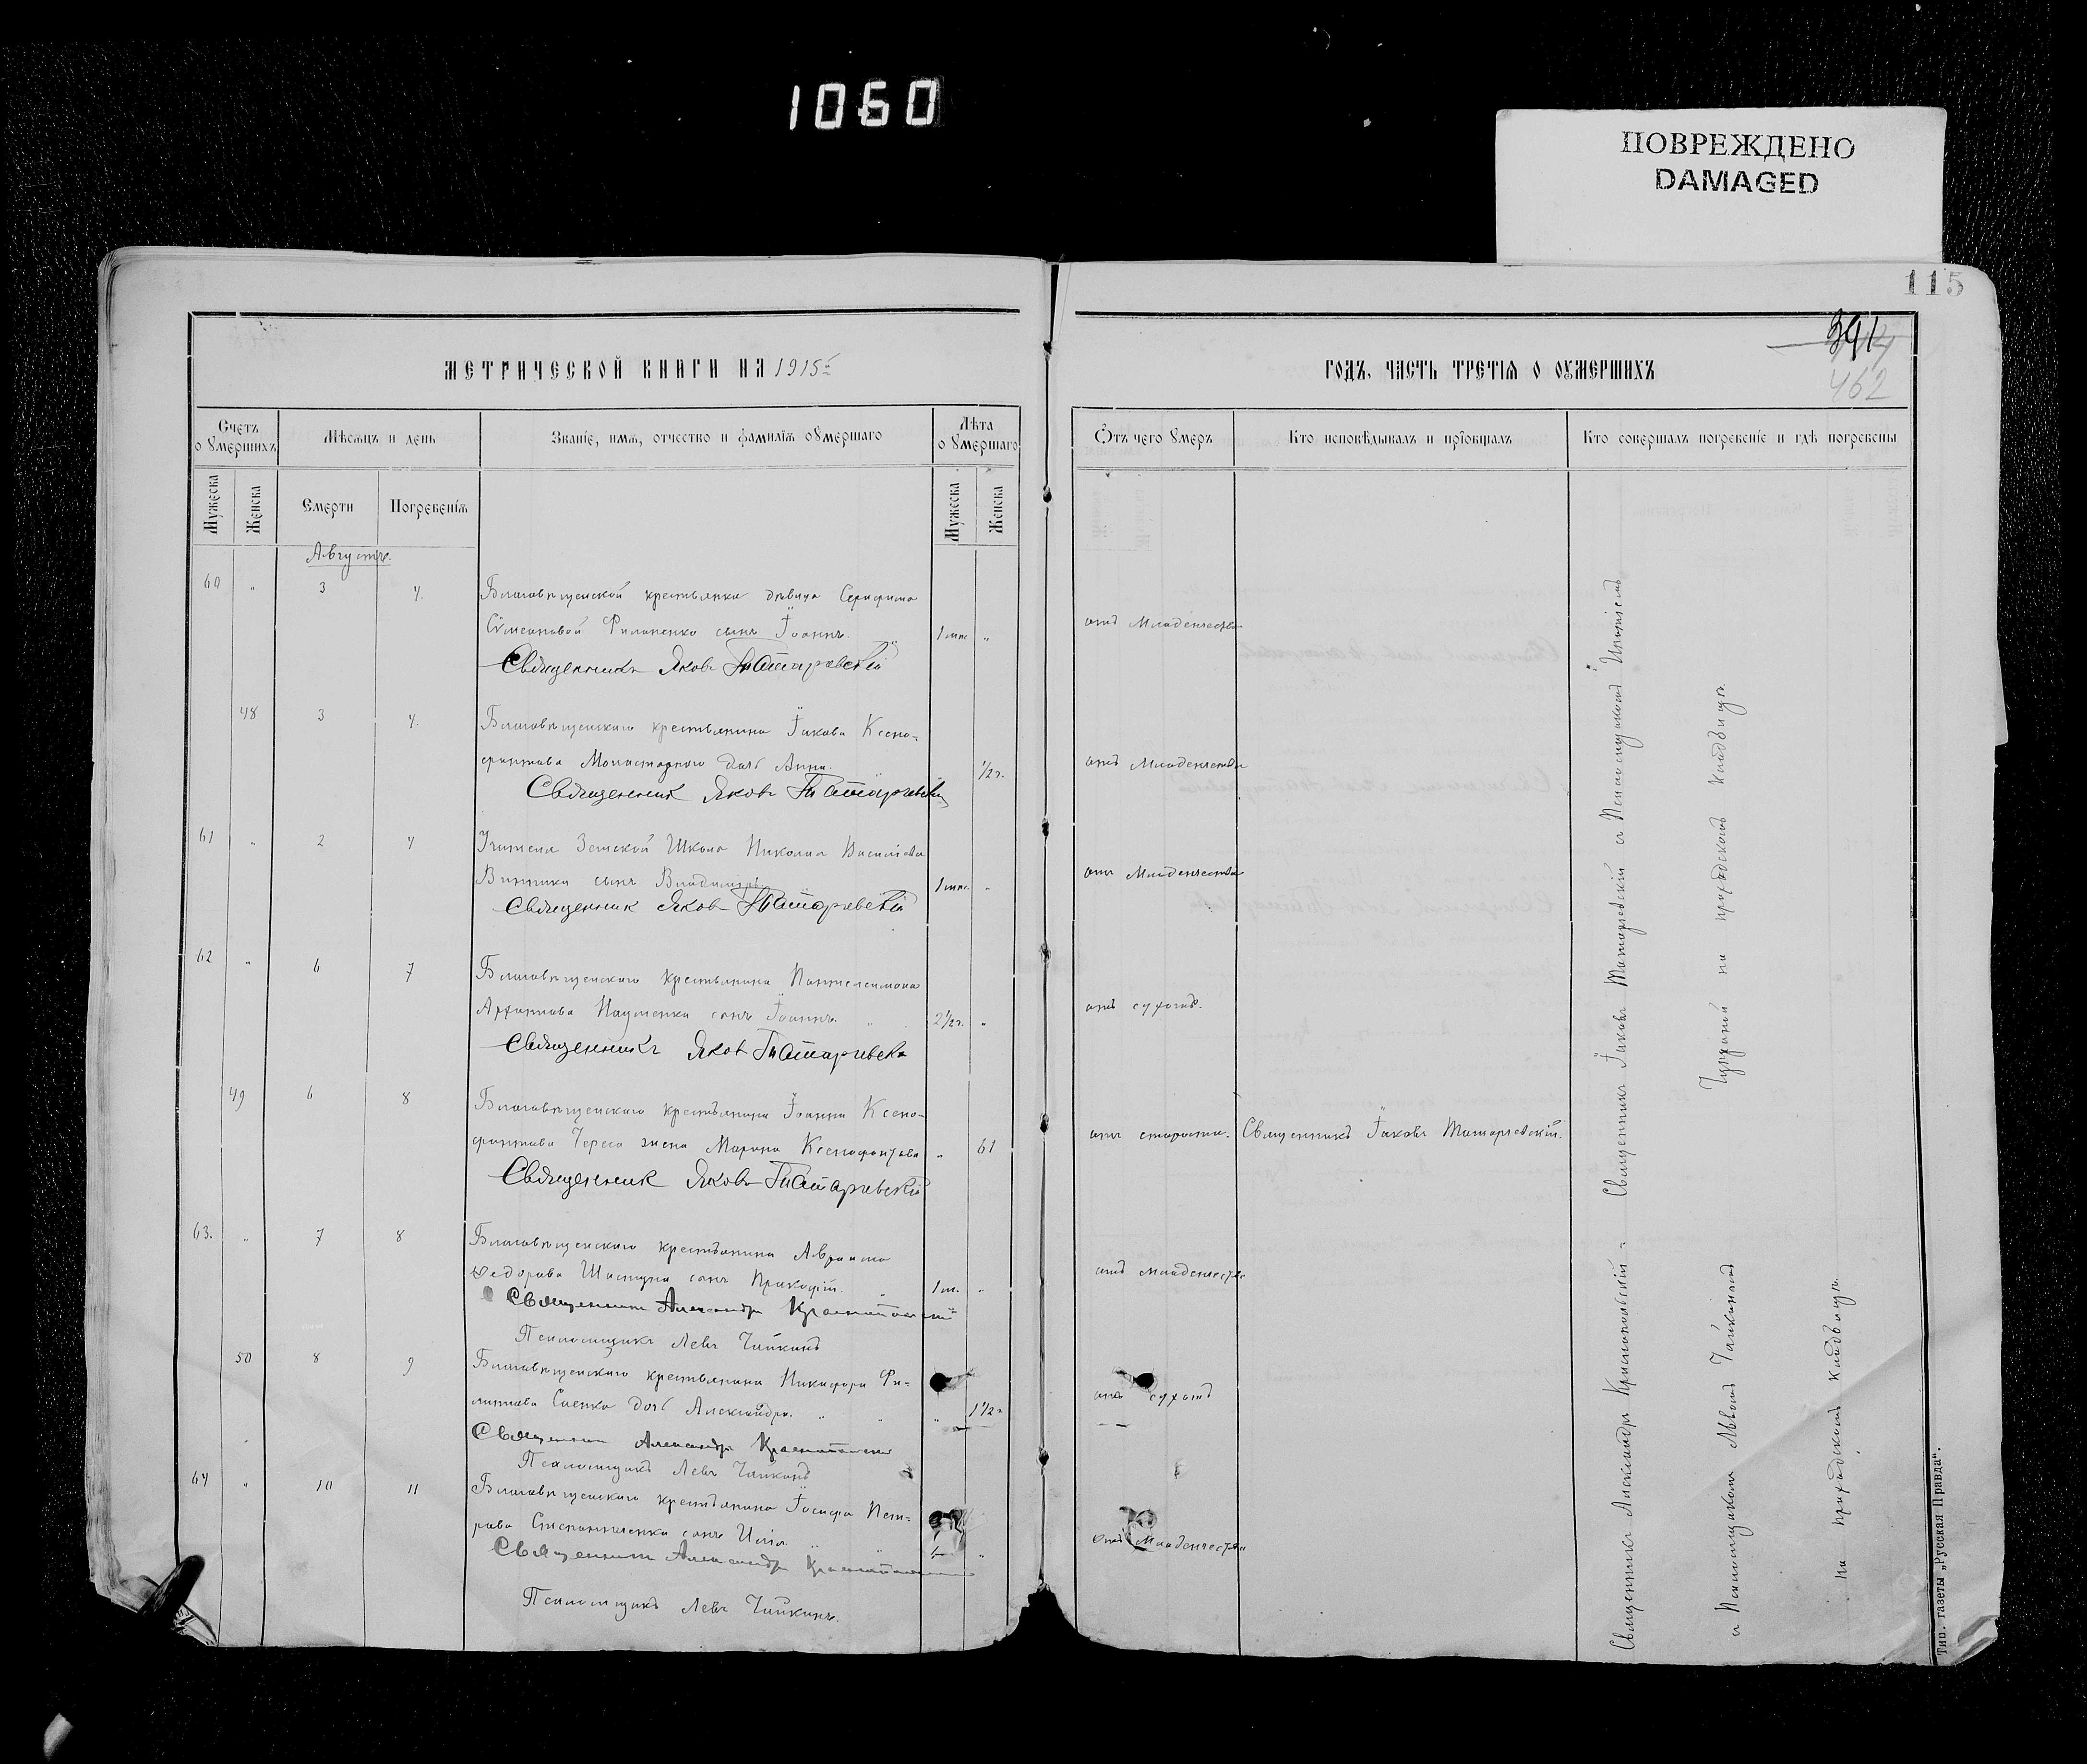 1060
ПОВРЕЖДЕНО
DAMAGED
115
391
462
МЕТРИЧЕСКОЙ КНИГИ НА 1915 г.
ГОДЪ, ЧАСТЬ ТРЕТІЯ О ОУМЕРШИХЪ
Счетъ оумершихъ
Мѣсяцъ и день
Званіе, имя, отчество и фамилія оумершаго
Лѣта оумершаго
Мужеска
Женска
Смерти
Погребенія
Мужеска
Женска
Отъ чего умеръ
Кто исповѣдывалъ и пріобщалъ
Кто совершалъ погребеніе и гдѣ погребены
Августъ.
60 " 3 4. Благовѣщенской крестьянки дѣвицы Серафимы
Филипенко сынъ Іоаннъ. 1 мѣс. " отъ Младенчества
Священникъ Яковъ Татаревскій
48 3 4. Благовѣщенскаго крестьянина Іакова Ксено-
фонтова Монастырнаго дочь Анна. 1/2 г. отъ Младенчества
Священникъ Яковъ Татаревскій
61 " 2 4 Учителя Земской Школы Николая Васильева
Винника сынъ Владимиръ 1 мѣс. " отъ Младенчества
Священникъ Яковъ Татаревскій
62 " 6 7 Благовѣщенскаго крестьянина Пантелеимона
Науменка сынъ Іоаннъ. 2 1/2 г. " отъ сухотъ.
Священникъ Яковъ Татаревскій
49 6 8 Благовѣщенскаго крестьянина Іоанна Ксено-
фонтова жена Марина Ксенофонтова " 61 отъ старости. Священникъ Іаковъ Татаревскій.
Священникъ Яковъ Татаревскій
63. " 7 8 Благовѣщенскаго крестьянина Авраама
Ѳедорова сынъ Прокофій. 1 м. " отъ младенчества
Священникъ Александръ
Псаломщикъ Левъ Чайкинъ
50 8 9 Благовѣщенскаго крестьянина Никифора Фи-
липпова дочь Александра. " 1 1/2 г. отъ сухотъ
Священникъ Александръ
Псаломщикъ Левъ Чайкинъ
64 " 10 11 Благовѣщенскаго крестьянина Іосифа Пет-
рова сынъ Илія " отъ Младенчества
Священникъ Александръ
Псаломщикъ Левъ Чайкинъ.
Священникъ Іаковъ Татаревскій съ Псаломщикомъ
на приходскомъ кладбищѣ.
Священникъ Александръ
съ Псаломщикомъ Львомъ Чайкинымъ
на приходскомъ кладбищѣ.
Тип. газеты „Русская Правда“.